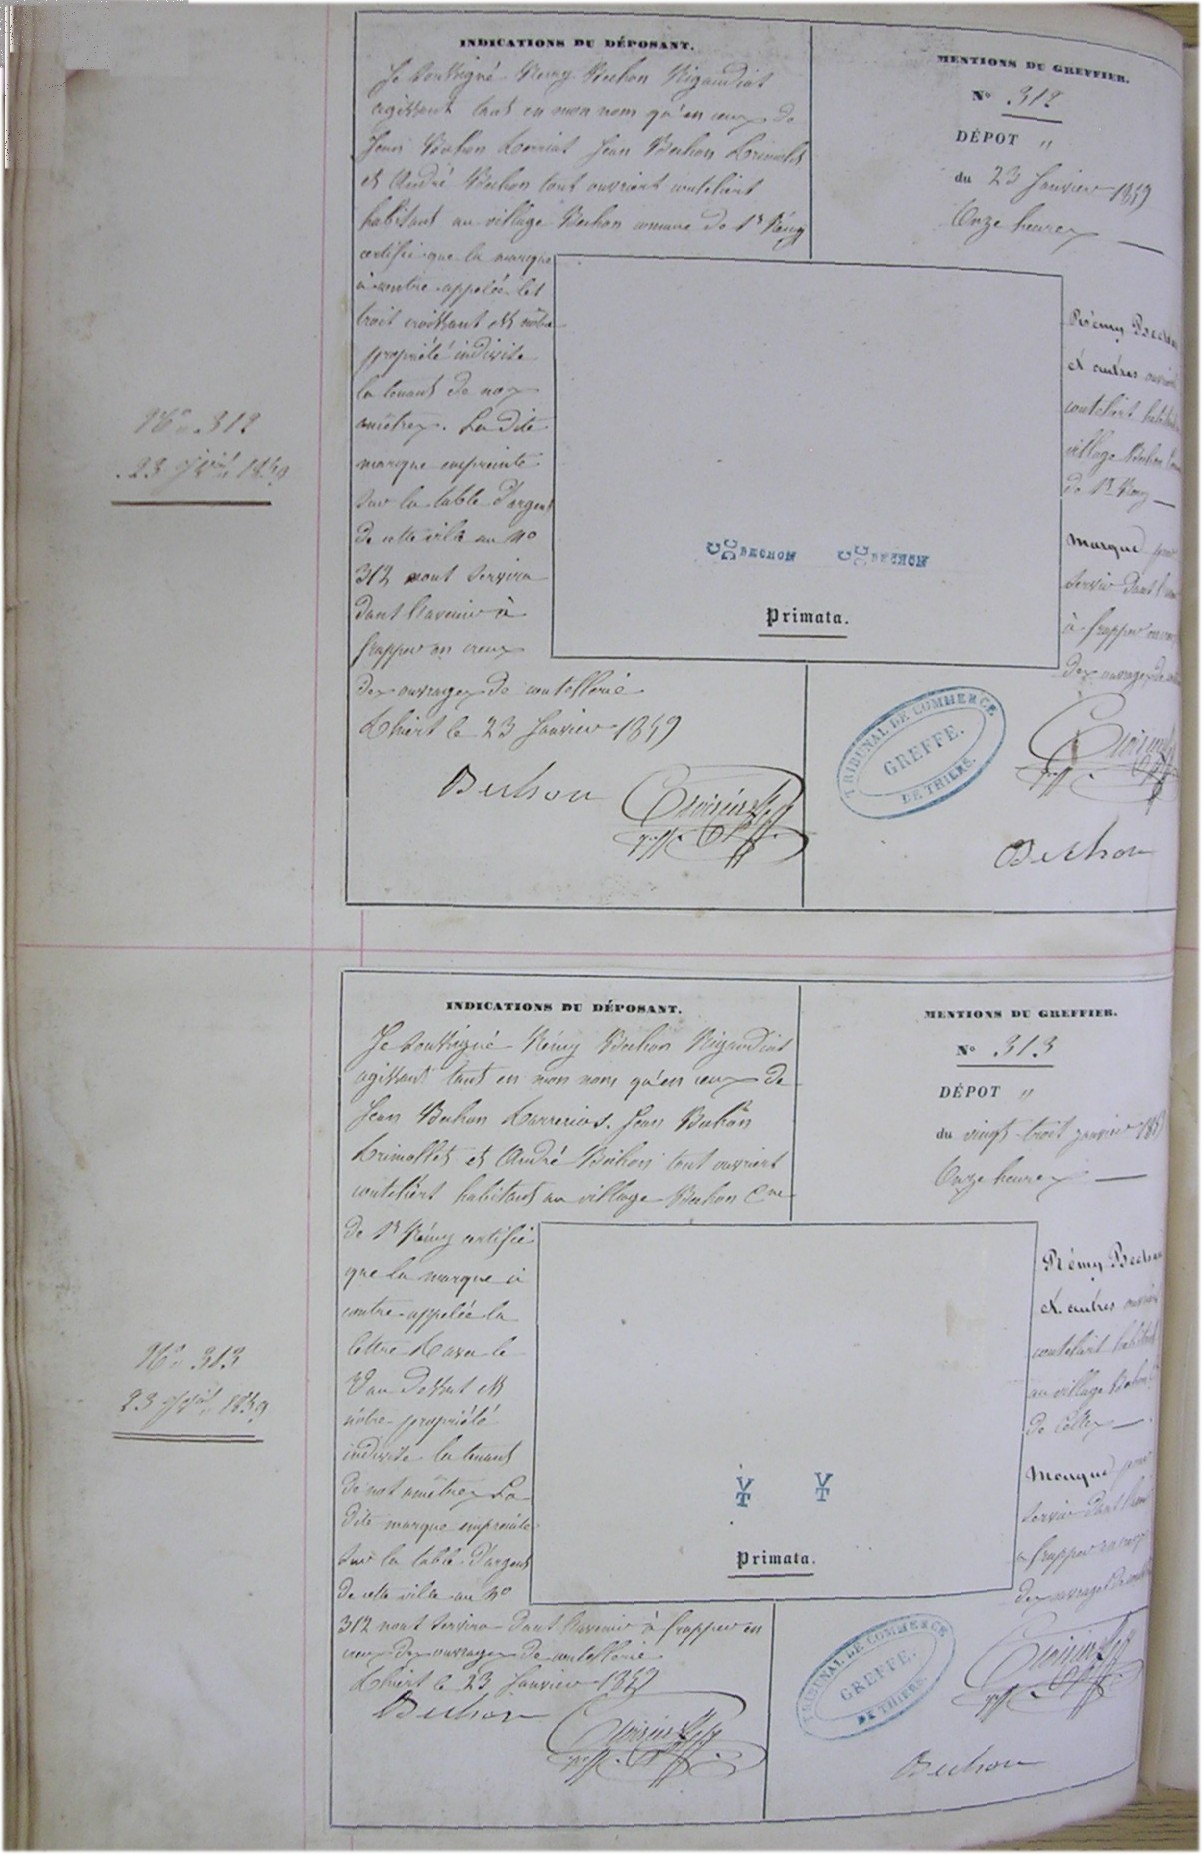 INDICATIONS DU DÉPOSANT.
Je soussigné Rémy Bechon Rigaudiat
agissant tant en mon nom qu'en ceux de
Jean Bechon Jean Bechon
et André Bechon tout ouvriers couteliers
habitant au village Bechon comune de St Rémy
certifie que la marque
à contre appelée les
trois croissant est notre
propriété indivise
la tenant de nos
ancêtres. La dite
marque empreinte
sur la table d'argent
de cette ville au No
312 nous servira
dans l'avenir à
frapper en creux
des ouvrages de coutellerie
Thiers le 23 Janvier 1859
Bechon
MENTIONS DU GREFFIER.
No 312
DÉPOT "
du 23 Janvier 1859
Onze heures
Rémy Bechon
et autres
couteliers
village Bechon
de St Rémy
Marque pour
servir dans
à frapper en
des ouvrages de
No 312
23 Jver 1859
CCC BECHON CCC BECHON
Primata.
TRIBUNAL DE COMMERCE
GREFFE.
DE THIERS.
Bechon
INDICATIONS DU DÉPOSANT.
Je soussigné Rémy Bechon Rigaudiat
agissant tant en mon nom qu'en ceux de
Jean Bechon Jean Bechon
et André Bechon tout ouvriers
couteliers habitant au village Bechon Cne
de St Rémy certifie
que la marque à
contre appelée la
lettre le
V au dessus est
notre propriété
indivise la tenant
de nos ancêtres La
dite marque empreinte
sur la table d'argent
de cette ville au No
312 nous servira dans l'avenir à frapper en
creux des ouvrages de coutellerie
Thiers le 23 Janvier 1859
Bechon
MENTIONS DU GREFFIER.
No 313
DÉPOT "
du vingt trois janvier 1859
Onze heures
Rémy Bechon
et autres
couteliers
au village Bechon
de Celles
Marque pour
servir dans
à frapper en
des ouvrages de
No 313
23 Jver 1859
V V
T T
Primata.
TRIBUNAL DE COMMERCE
GREFFE.
DE THIERS.
Bechon